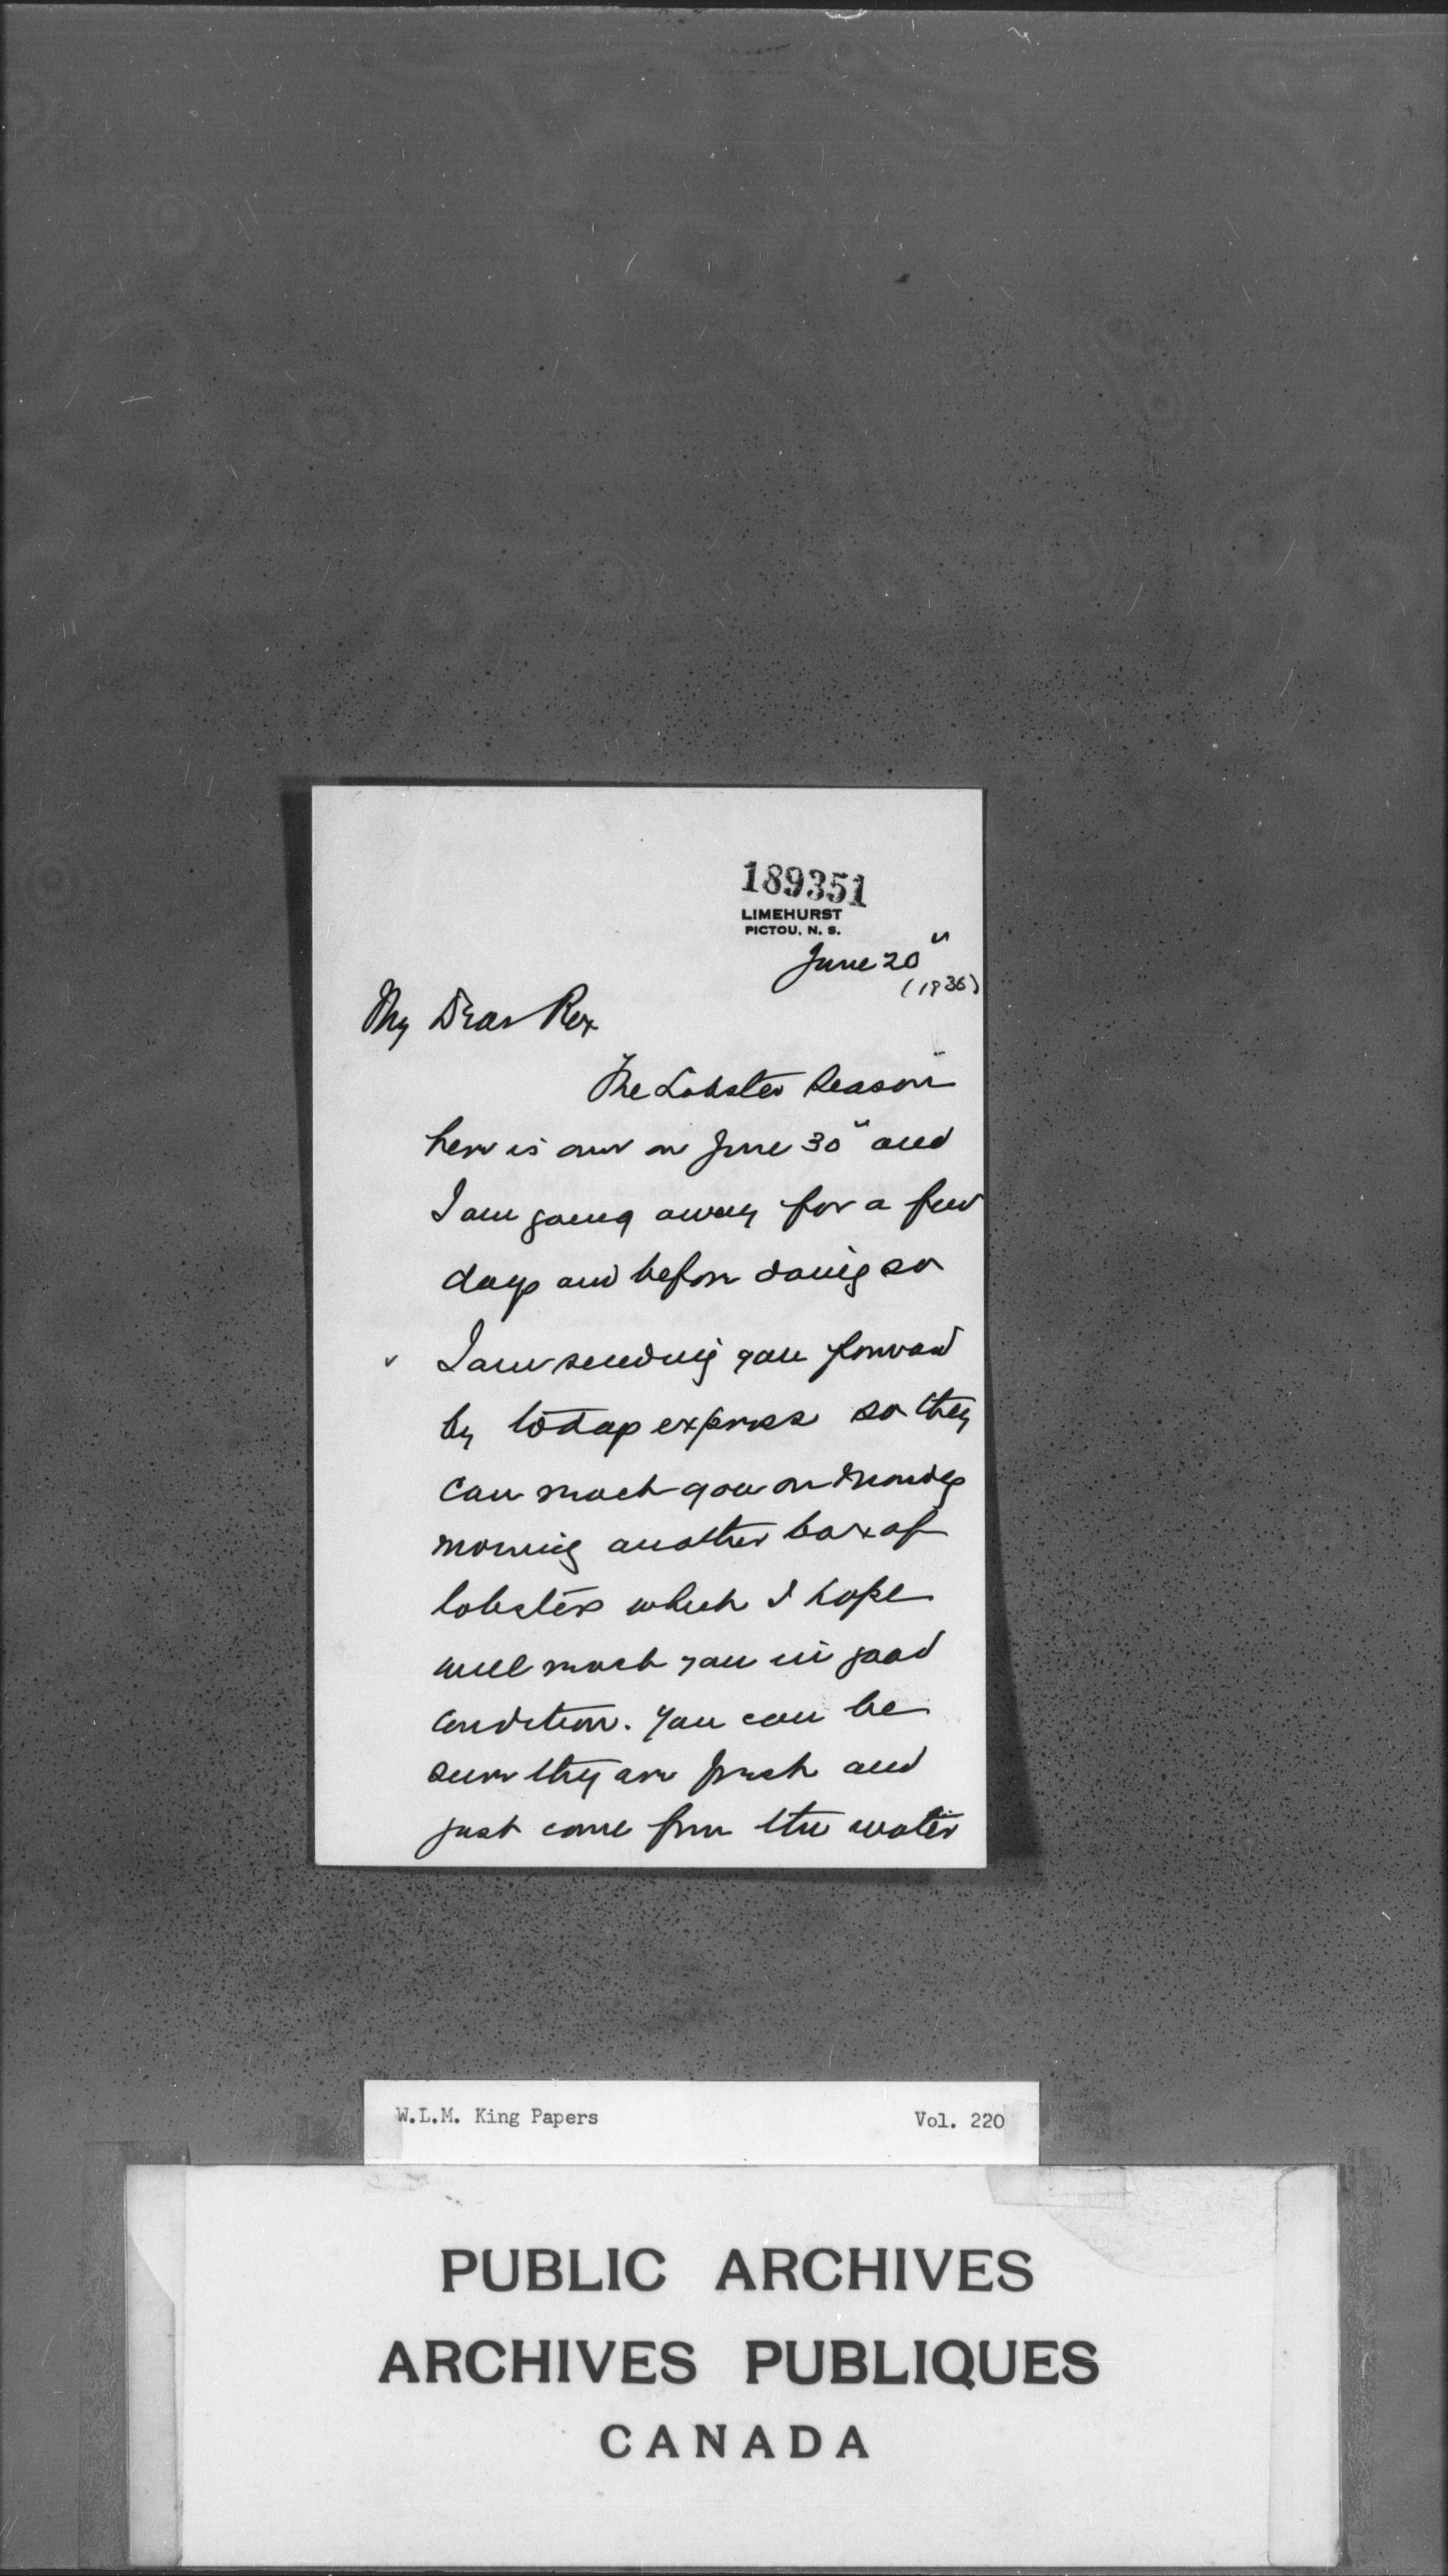 189351
LIMEHURST
PICTOU, N. S.
June 20"
(1936)
My Dear Rex
The Lobster Season
here is over on June 30" and
I am going away for a few
days and before doing so
I am sending you forward
by today express so they
can reach you on Monday
morning another box of
lobsters which I hope
will reach you in good
condition. You can be
sure they are fresh and
just come from the water
W.L.M. King Papers Vol. 220
PUBLIC ARCHIVES
ARCHIVES PUBLIQUES
CANADA